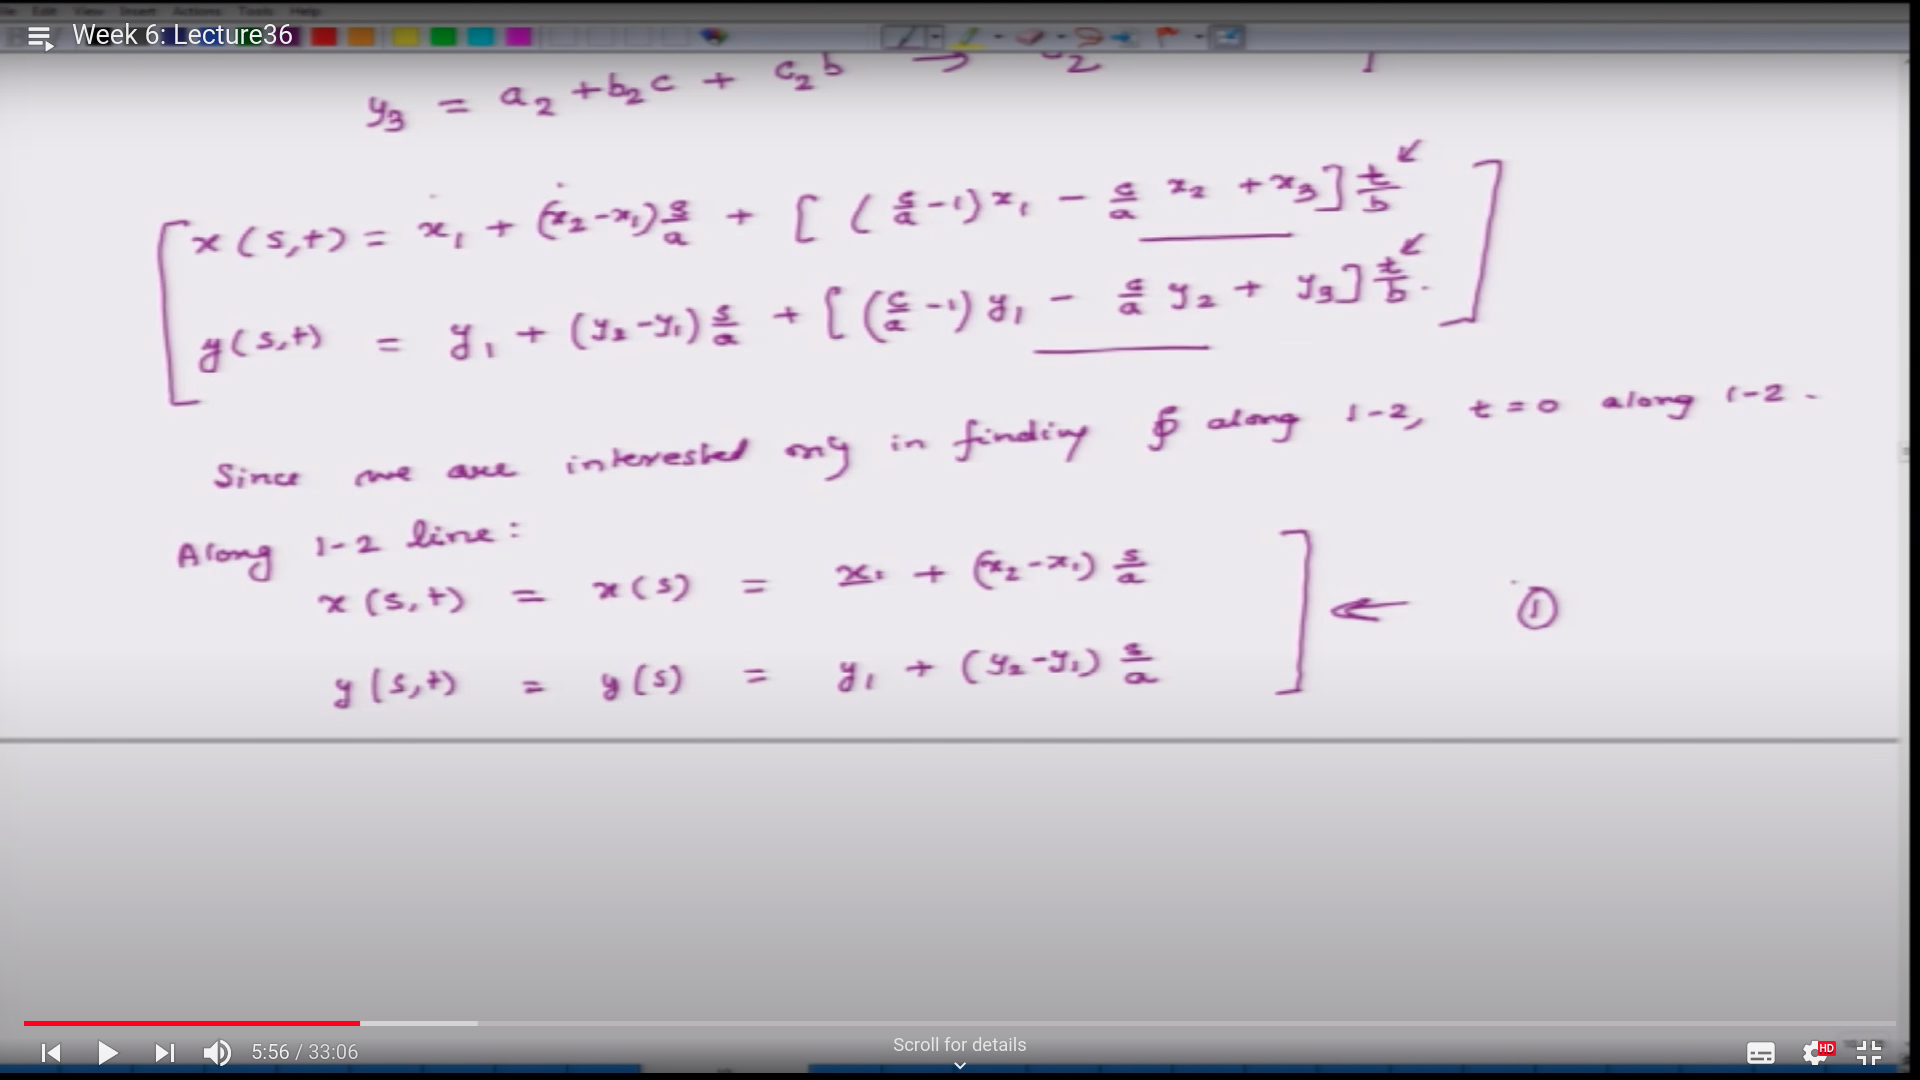 File Edit View Insert Actions Tools Help
Week 6: Lecture36
y₃ = a₂ + b₂c + c₂b →
x(s,t) = x₁ + (x₂-x₁) s/a + [ (c/a -1) x₁ - c/a x₂ + x₃ ] t/b
y(s,t) = y₁ + (y₂-y₁) s/a + [ (c/a -1) y₁ - c/a y₂ + y₃ ] t/b .
Since we are interested only in finding ∮ along 1-2, t=0 along 1-2 .
Along 1-2 line:
x(s,t) = x(s) = x₁ + (x₂-x₁) s/a
← ①
y(s,t) = y(s) = y₁ + (y₂-y₁) s/a
5:56 / 33:06
Scroll for details
HD